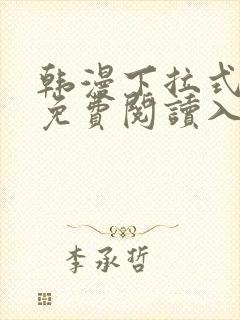 韩漫下拉式
免費閱讀入
李承哲